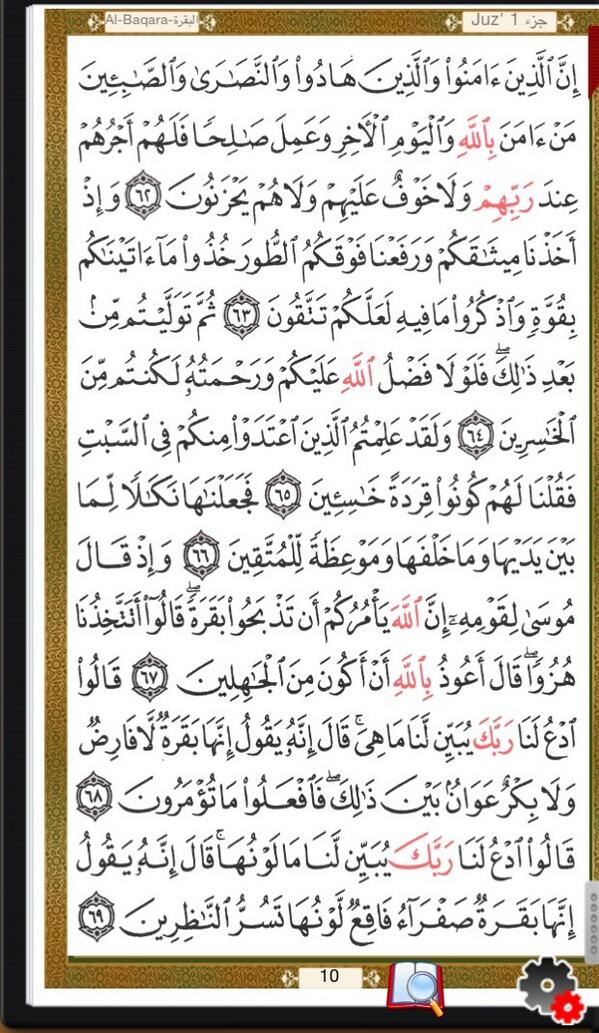 Al-Baqara-البقرة
Juz' 1 جزء
إِنَّ ٱلَّذِينَ ءَامَنُوا۟ وَٱلَّذِينَ هَادُوا۟ وَٱلنَّصَـٰرَىٰ وَٱلصَّـٰبِـِٔينَ
مَنْ ءَامَنَ بِٱللَّهِ وَٱلْيَوْمِ ٱلْـَٔاخِرِ وَعَمِلَ صَـٰلِحًا فَلَهُمْ أَجْرُهُمْ
عِندَ رَبِّهِمْ وَلَا خَوْفٌ عَلَيْهِمْ وَلَا هُمْ يَحْزَنُونَ ٦٢ وَإِذْ
أَخَذْنَا مِيثَـٰقَكُمْ وَرَفَعْنَا فَوْقَكُمُ ٱلطُّورَ خُذُوا۟ مَآ ءَاتَيْنَـٰكُم
بِقُوَّةٍ وَٱذْكُرُوا۟ مَا فِيهِ لَعَلَّكُمْ تَتَّقُونَ ٦٣ ثُمَّ تَوَلَّيْتُم مِّنۢ
بَعْدِ ذَٰلِكَ ۖ فَلَوْلَا فَضْلُ ٱللَّهِ عَلَيْكُمْ وَرَحْمَتُهُۥ لَكُنتُم مِّنَ
ٱلْخَـٰسِرِينَ ٦٤ وَلَقَدْ عَلِمْتُمُ ٱلَّذِينَ ٱعْتَدَوْا۟ مِنكُمْ فِى ٱلسَّبْتِ
فَقُلْنَا لَهُمْ كُونُوا۟ قِرَدَةً خَـٰسِـِٔينَ ٦٥ فَجَعَلْنَـٰهَا نَكَـٰلًا لِّمَا
بَيْنَ يَدَيْهَا وَمَا خَلْفَهَا وَمَوْعِظَةً لِّلْمُتَّقِينَ ٦٦ وَإِذْ قَالَ
مُوسَىٰ لِقَوْمِهِۦٓ إِنَّ ٱللَّهَ يَأْمُرُكُمْ أَن تَذْبَحُوا۟ بَقَرَةً ۖ قَالُوٓا۟ أَتَتَّخِذُنَا
هُزُوًا ۖ قَالَ أَعُوذُ بِٱللَّهِ أَنْ أَكُونَ مِنَ ٱلْجَـٰهِلِينَ ٦٧ قَالُوا۟
ٱدْعُ لَنَا رَبَّكَ يُبَيِّن لَّنَا مَا هِىَ ۚ قَالَ إِنَّهُۥ يَقُولُ إِنَّهَا بَقَرَةٌ لَّا فَارِضٌ
وَلَا بِكْرٌ عَوَانٌۢ بَيْنَ ذَٰلِكَ ۖ فَٱفْعَلُوا۟ مَا تُؤْمَرُونَ ٦٨
قَالُوا۟ ٱدْعُ لَنَا رَبَّكَ يُبَيِّن لَّنَا مَا لَوْنُهَا ۚ قَالَ إِنَّهُۥ يَقُولُ
إِنَّهَا بَقَرَةٌ صَفْرَآءُ فَاقِعٌ لَّوْنُهَا تَسُرُّ ٱلنَّـٰظِرِينَ ٦٩
10